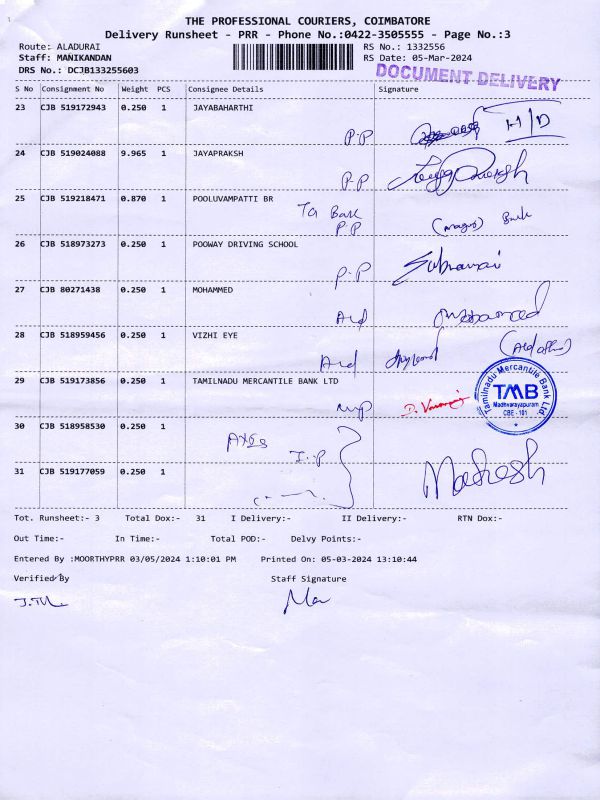 THE PROFESSIONAL COURIERS, COIMBATORE
Delivery Runsheet - PRR - Phone No.:0422-3505555 - Page No.:3
Route: ALADURAI RS No.: 1332556
Staff: MANIKANDAN RS Date: 05-Mar-2024
DRS No.: DCJB133255603 DOCUMENT DELIVERY
S No Consignment No Weight PCS Consignee Details Signature
23 CJB 519172943 0.250 1 JAYABAHARTHI
P.P H/D
24 CJB 519024088 9.965 1 JAYAPRAKSH
P.P
25 CJB 519218471 0.870 1 POOLUVAMPATTI BR
P.P
26 CJB 518973273 0.250 1 POOWAY DRIVING SCHOOL
P.P
27 CJB 80271438 0.250 1 MOHAMMED
28 CJB 518959456 0.250 1 VIZHI EYE
29 CJB 519173856 0.250 1 TAMILNADU MERCANTILE BANK LTD
Tamilnadu Mercantile Bank Ltd.
TMB
Madhvarayapuram
CBE - 101
30 CJB 518958530 0.250 1
31 CJB 519177059 0.250 1 Mahesh
Tot. Runsheet:- 3 Total Dox:- 31 I Delivery:- II Delivery:- RTN Dox:-
Out Time:- In Time:- Total POD:- Delvy Points:-
Entered By :MOORTHYPRR 03/05/2024 1:10:01 PM Printed On: 05-03-2024 13:10:44
Verified By Staff Signature